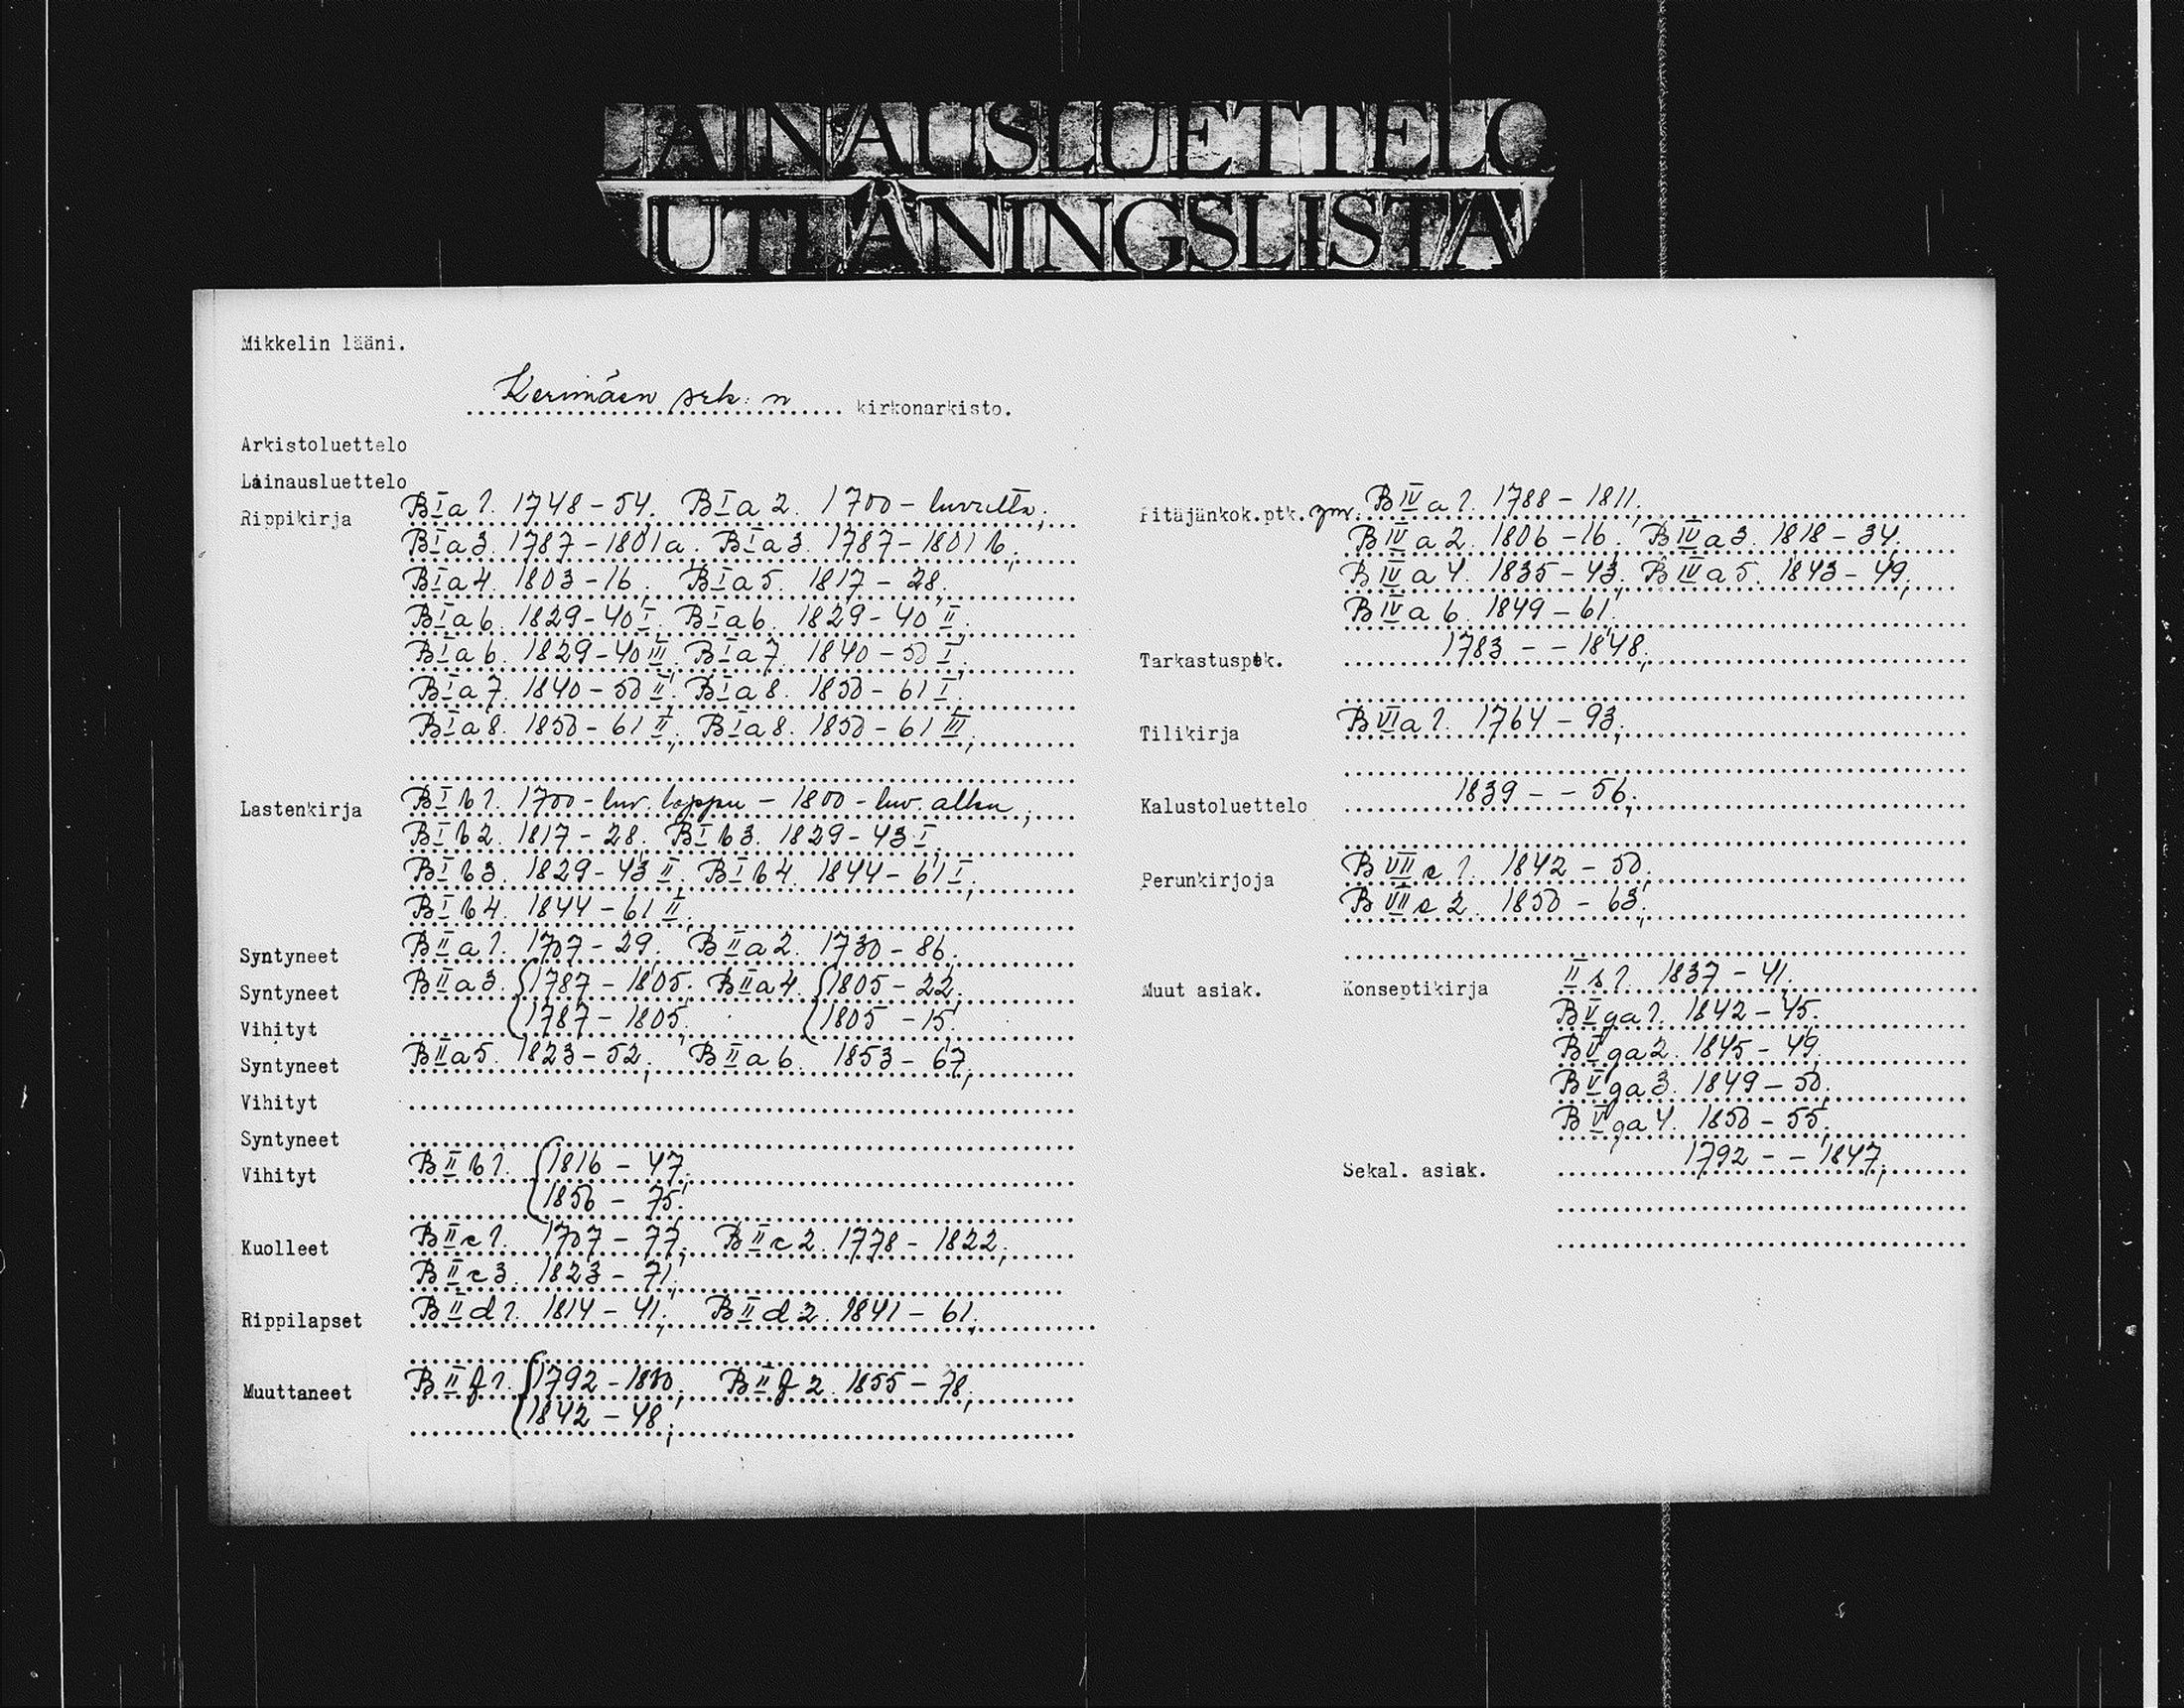 LAINAUSLUETTELO
UTLÅNINGSLISTA
Mikkelin lääni.
Kerimäen srk:n kirkonarkisto.
Arkistoluettelo
Lainausluettelo
Rippikirja BIa1. 1748-54. BIa2. 1700-luvulta;
BIa3. 1787-1801a. BIa3. 1787-1801b;
BIa4. 1803-16; BIa5. 1817-28;
BIa6. 1829-40 I; BIa6. 1829-40 II;
BIa6. 1829-40 III; BIa7. 1840-50 I;
BIa7. 1840-50 II; BIa8. 1850-61 I;
BIa8. 1850-61 II; BIa8. 1850-61 III;
Lastenkirja BIb1. 1700-luv. loppu - 1800-luv. alku;
BIb2. 1817-28. BIb3. 1829-43 I;
BIb3. 1829-43 II; BIb4. 1844-61 I;
BIb4. 1844-61 II;
Syntyneet BIIa1. 1707-29. BIIa2. 1730-86;
Syntyneet BIIa3. {1787-1805. BIIa4. {1805-22;
Vihityt {1787-1805; {1805-15;
Syntyneet BIIa5. 1823-52; BIIa6. 1853-67;
Vihityt
Syntyneet
Vihityt BIIb1. {1816-47;
{1856-75;
Kuolleet BIIc1. 1707-77; BIIc2. 1778-1822;
BIIc3. 1823-71;
Rippilapset BIId1. 1814-41; BIId2. 1841-61;
Muuttaneet BIIf1. {1792-; BIIf2. 1855-78;
{1842-48;
Pitäjänkok.ptk. ym. BIVa1. 1788-1811.
BIVa2. 1806-16; BIVa3. 1818-34.
BIVa4. 1835-43; BIVa5. 1843-49;
BIVa6. 1849-61.
Tarkastuspök. 1783--1848;
Tilikirja BVIa1. 1764-93;
Kalustoluettelo 1839--56;
Perunkirjoja BVIIc1. 1842-50;
BVIIc2. 1850-63;
Muut asiak. Konseptikirja 1837-41.
BVga1. 1842-45.
BVga2. 1845-49.
BVga3. 1849-50.
BVga4. 1850-55;
Sekal. asiak. 1792--1847;